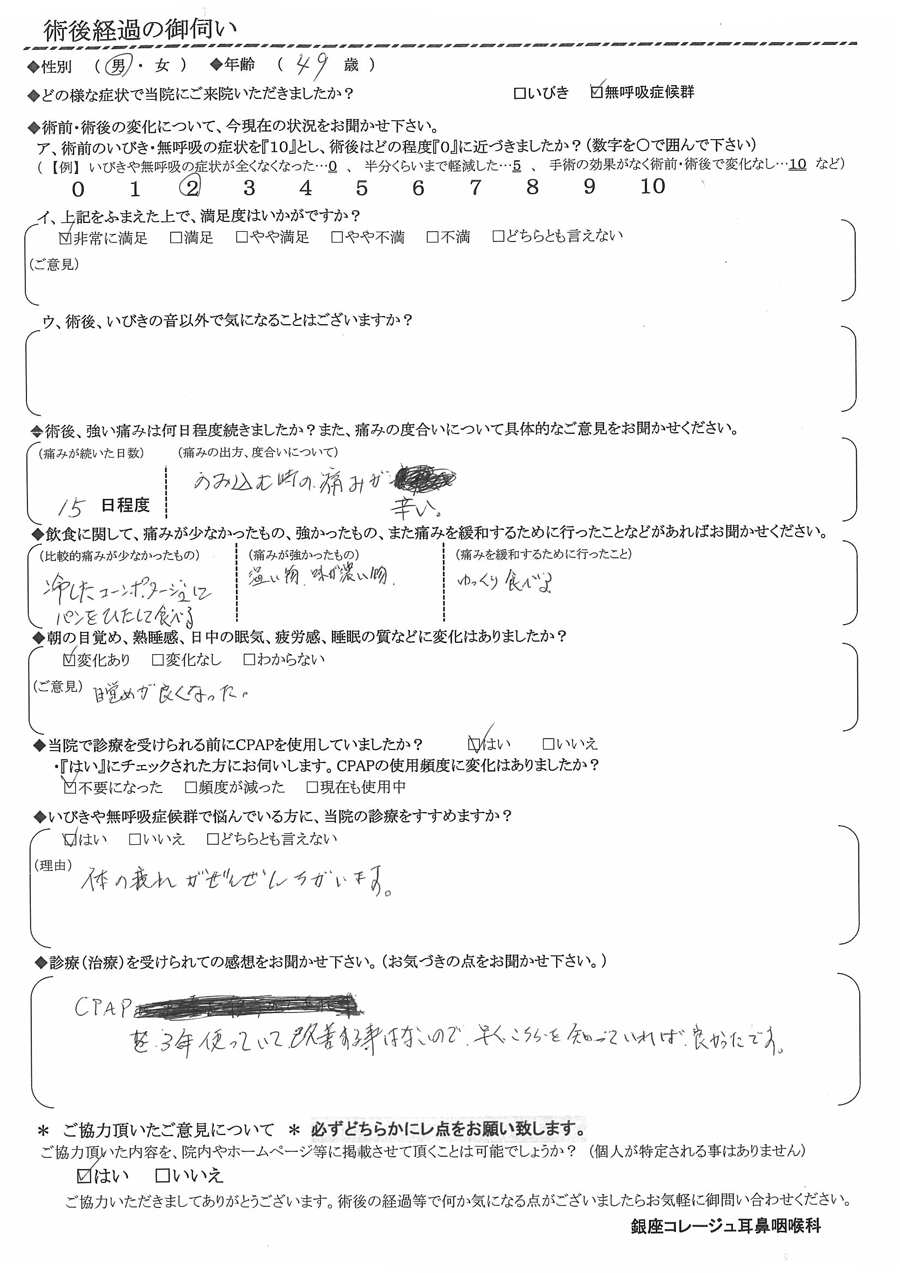 術後経過の御伺い
◆性別 （ 男 ・ 女 ） ◆年齢 （ 49 歳 ）
◆どの様な症状で当院にご来院いただきましたか？ □いびき ☑無呼吸症候群
◆術前・術後の変化について、今現在の状況をお聞かせ下さい。
ア、術前のいびき・無呼吸の症状を『10』とし、術後はどの程度『0』に近づきましたか？（数字を○で囲んで下さい）
（【例】 いびきや無呼吸の症状が全くなくなった…0 、 半分くらいまで軽減した…5 、 手術の効果がなく術前・術後で変化なし…10 など）
0 1 2 3 4 5 6 7 8 9 10
イ、上記をふまえた上で、満足度はいかがですか？
☑非常に満足 □満足 □やや満足 □やや不満 □不満 □どちらとも言えない
（ご意見）
ウ、術後、いびきの音以外で気になることはございますか？
◆術後、強い痛みは何日程度続きましたか？また、痛みの度合いについて具体的なご意見をお聞かせください。
（痛みが続いた日数） （痛みの出方、度合いについて）
のみ込む時の痛みが
15 日程度 辛い。
◆飲食に関して、痛みが少なかったもの、強かったもの、また痛みを緩和するために行ったことなどがあればお聞かせください。
（比較的痛みが少なかったもの） （痛みが強かったもの） （痛みを緩和するために行ったこと）
冷したコーンポタージュに 温い物、味が濃い物、 ゆっくり食べる
パンをひたして食べる
◆朝の目覚め、熟睡感、日中の眠気、疲労感、睡眠の質などに変化はありましたか？
☑変化あり □変化なし □わからない
（ご意見） 目覚めが良くなった。
◆当院で診療を受けられる前にCPAPを使用していましたか？ ☑はい □いいえ
・『はい』にチェックされた方にお伺いします。CPAPの使用頻度に変化はありましたか？
☑不要になった □頻度が減った □現在も使用中
◆いびきや無呼吸症候群で悩んでいる方に、当院の診療をすすめますか？
☑はい □いいえ □どちらとも言えない
（理由） 体の疲れがぜんぜんちがいます。
◆診療（治療）を受けられての感想をお聞かせ下さい。（お気づきの点をお聞かせ下さい。）
CPAP
を3年使っていて、改善する事はないので、早くこちらを知っていれば良かったです。
＊ ご協力頂いたご意見について ＊ 必ずどちらかにレ点をお願い致します。
ご協力頂いた内容を、院内やホームページ等に掲載させて頂くことは可能でしょうか？ （個人が特定される事はありません）
☑はい □いいえ
ご協力いただきましてありがとうございます。術後の経過等で何か気になる点がございましたらお気軽に御問い合わせください。
銀座コレージュ耳鼻咽喉科